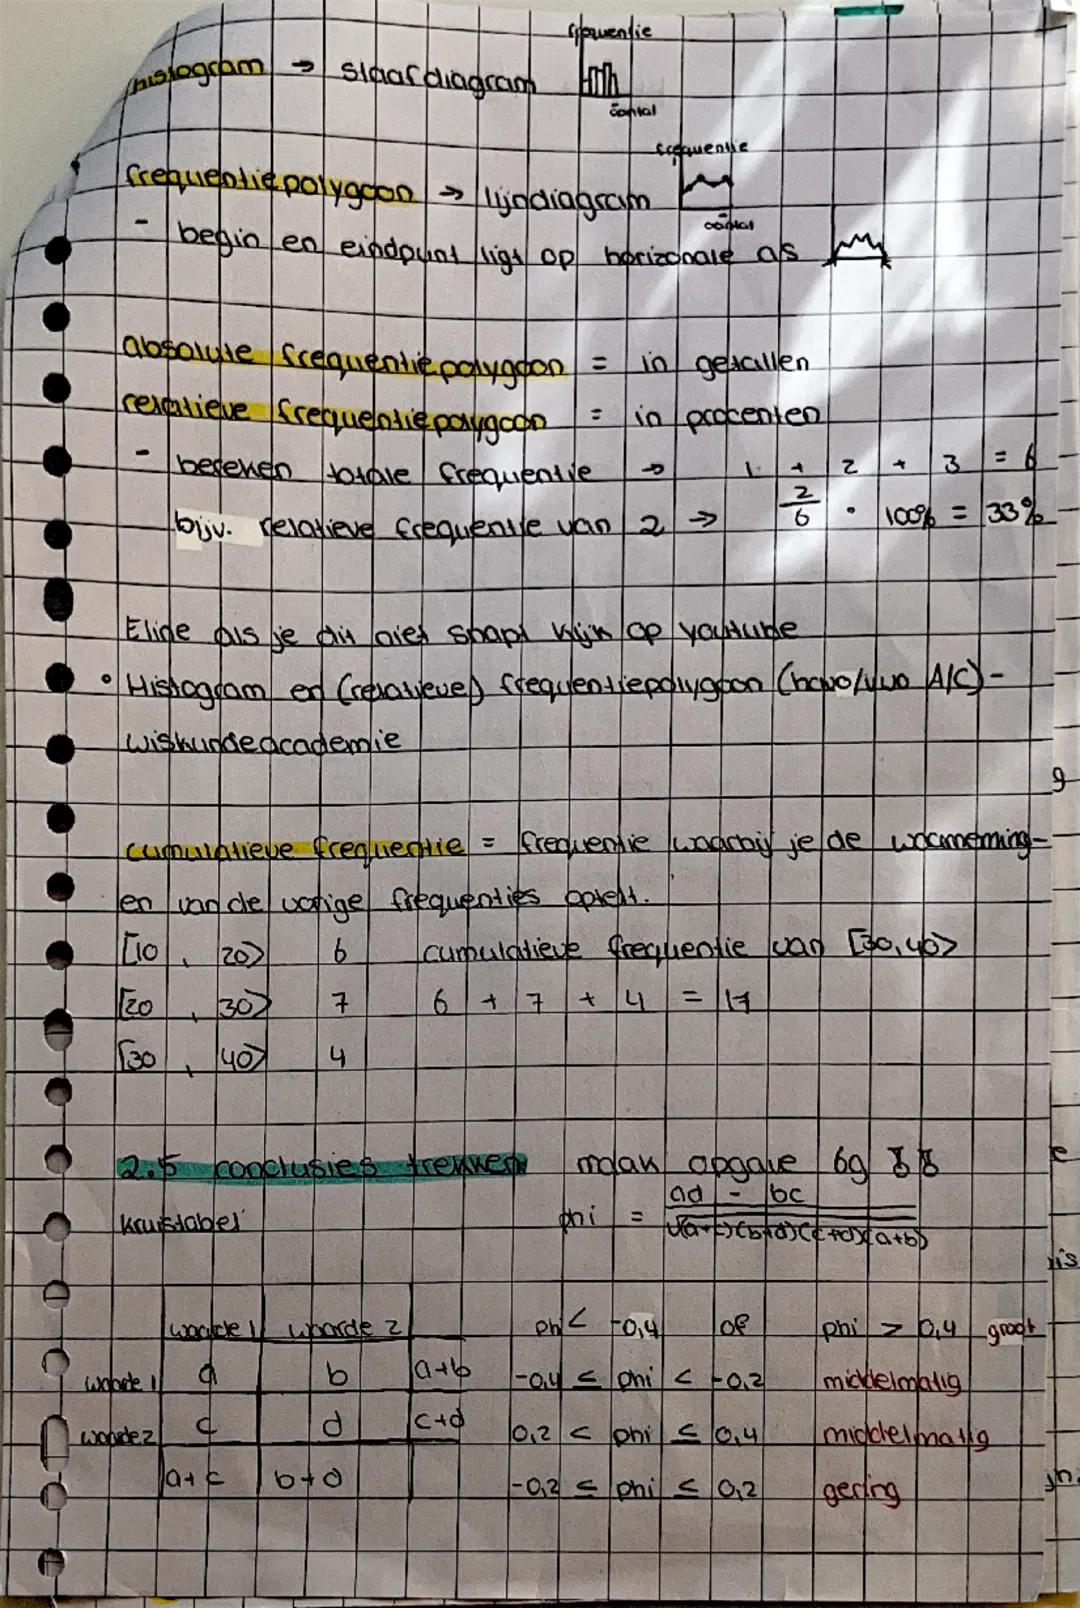 frequentie
histogram → staafdiagram
aantal
frequentie
frequentiepolygoon → lijndiagram
aantal
- begin en eindpunt ligt op horizonale as
absolute frequentiepolygoon = in getallen
relatieve frequentiepolygoon = in procenten
- berekен totale frequentie → 1 + 2 + 3 = 6
bijv. relatieve frequentie van 2 → 2/6 • 100% = 33%
Eline als je dit niet snapt kijk op youtube
• Histogram en (relatieve) frequentiepolygoon (havo/vwo A/C) -
wiskundeacademie
g
cumulatieve frequentie = frequentie waarbij je de waarneming-
en van de vorige frequenties optelt.
[10 , 20> 6 cumulatieve frequentie van [30,40>
[20 , 30> 7 6 + 7 + 4 = 17
[30 , 40> 4
2.5 conclusies trekken maak opgave 6g
e
kruistabel phi = ad - bc / √(a+c)(b+d)(c+d)(a+b)
is
waarde 1 waarde 2 phi < -0,4 of phi > 0,4 groot
waarde 1 a b a+b -0,4 ≤ phi < -0,2 middelmatig
waarde 2 c d c+d 0,2 < phi ≤ 0,4 middelmatig
a+c b+d -0,2 ≤ phi ≤ 0,2 gering